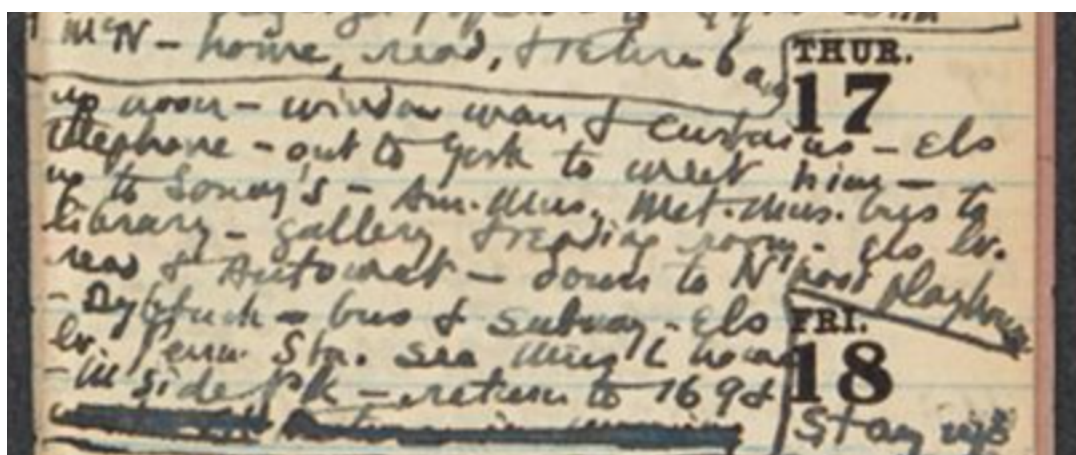 McN - home, read, & retire 6 a.m.
THUR.
17
up noon - window man & curtains - Els
telephone - out to York to meet him -
up to Sonny's - Am. Mus., Met. Mus. bus to
library - gallery & reading room - Els lv.
read & Automat - down to N'hood Playhouse
- Dybbuk - bus & subway - Els
FRI.
lv. Penn Sta. see home
18
- M'side Pk - return to 169th
Stay